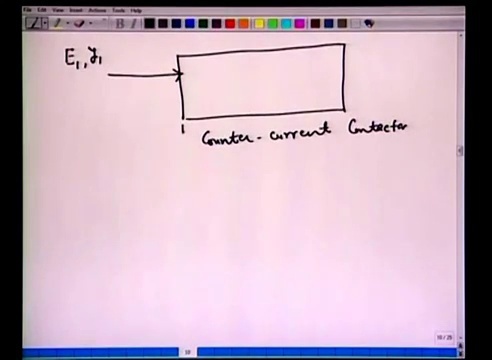 File Edit View Insert Actions Tools Help
E₁, y₁
1
Counter-current Contactor
10
10/25